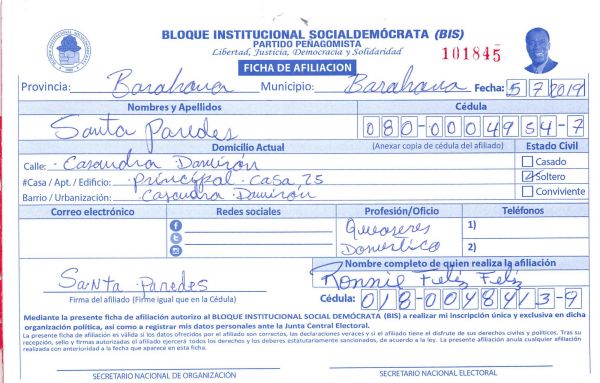 BLOQUE INSTITUCIONAL SOCIALDEMÓCRATA (BIS)
PARTIDO PEÑAGOMISTA
Libertad, Justicia, Democracia y Solidaridad
101845
FICHA DE AFILIACION
Provincia: Barahona Municipio: Barahona Fecha: 5 7 2019
Nombres y Apellidos Cédula
Santa Paredes 080-0004954-7
Domicilio Actual (Anexar copia de cédula del afiliado) Estado Civil
Calle: Casandra Damirón Casado
#Casa / Apt. / Edificio: principal casa 25 Soltero
Barrio / Urbanización: Casandra Damirón Conviviente
Correo electrónico Redes sociales Profesión/Oficio Teléfonos
Queaseres 1)
Domestico 2)
Nombre completo de quien realiza la afiliación
Santa Paredes Ronnie Feliz Feliz
Firma del afiliado (Firme igual que en la Cédula) Cédula: 018-0048413-9
Mediante la presente ficha de afiliación autorizo al BLOQUE INSTITUCIONAL SOCIAL DEMÓCRATA (BIS) a realizar mi inscripción única y exclusiva en dicha
organización política, así como a registrar mis datos personales ante la Junta Central Electoral.
La presente ficha de afiliación es válida si los datos ofrecidos por el afiliado son correctos, las declaraciones veraces y si el afiliado tiene el disfrute de sus derechos civiles y políticos. Tras su
recepción, sello y firmas autorizadas el afiliado ejercerá todos los derechos y los deberes estatutariamente sancionados, de acuerdo a la ley. La presente afiliación anula cualquier afiliación
realizada con anterioridad a la fecha que aparece en esta ficha.
SECRETARIO NACIONAL DE ORGANIZACIÓN SECRETARIO NACIONAL ELECTORAL